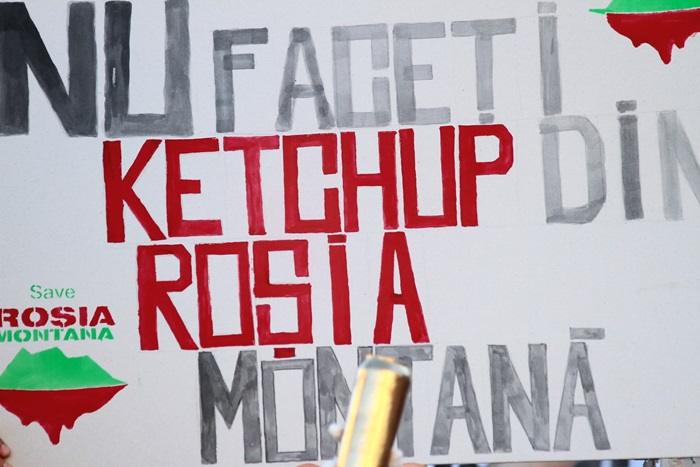 NU FACEȚI
KETCHUP DIN
ROȘIA
MONTANĂ
Save
ROSIA
MONTANA